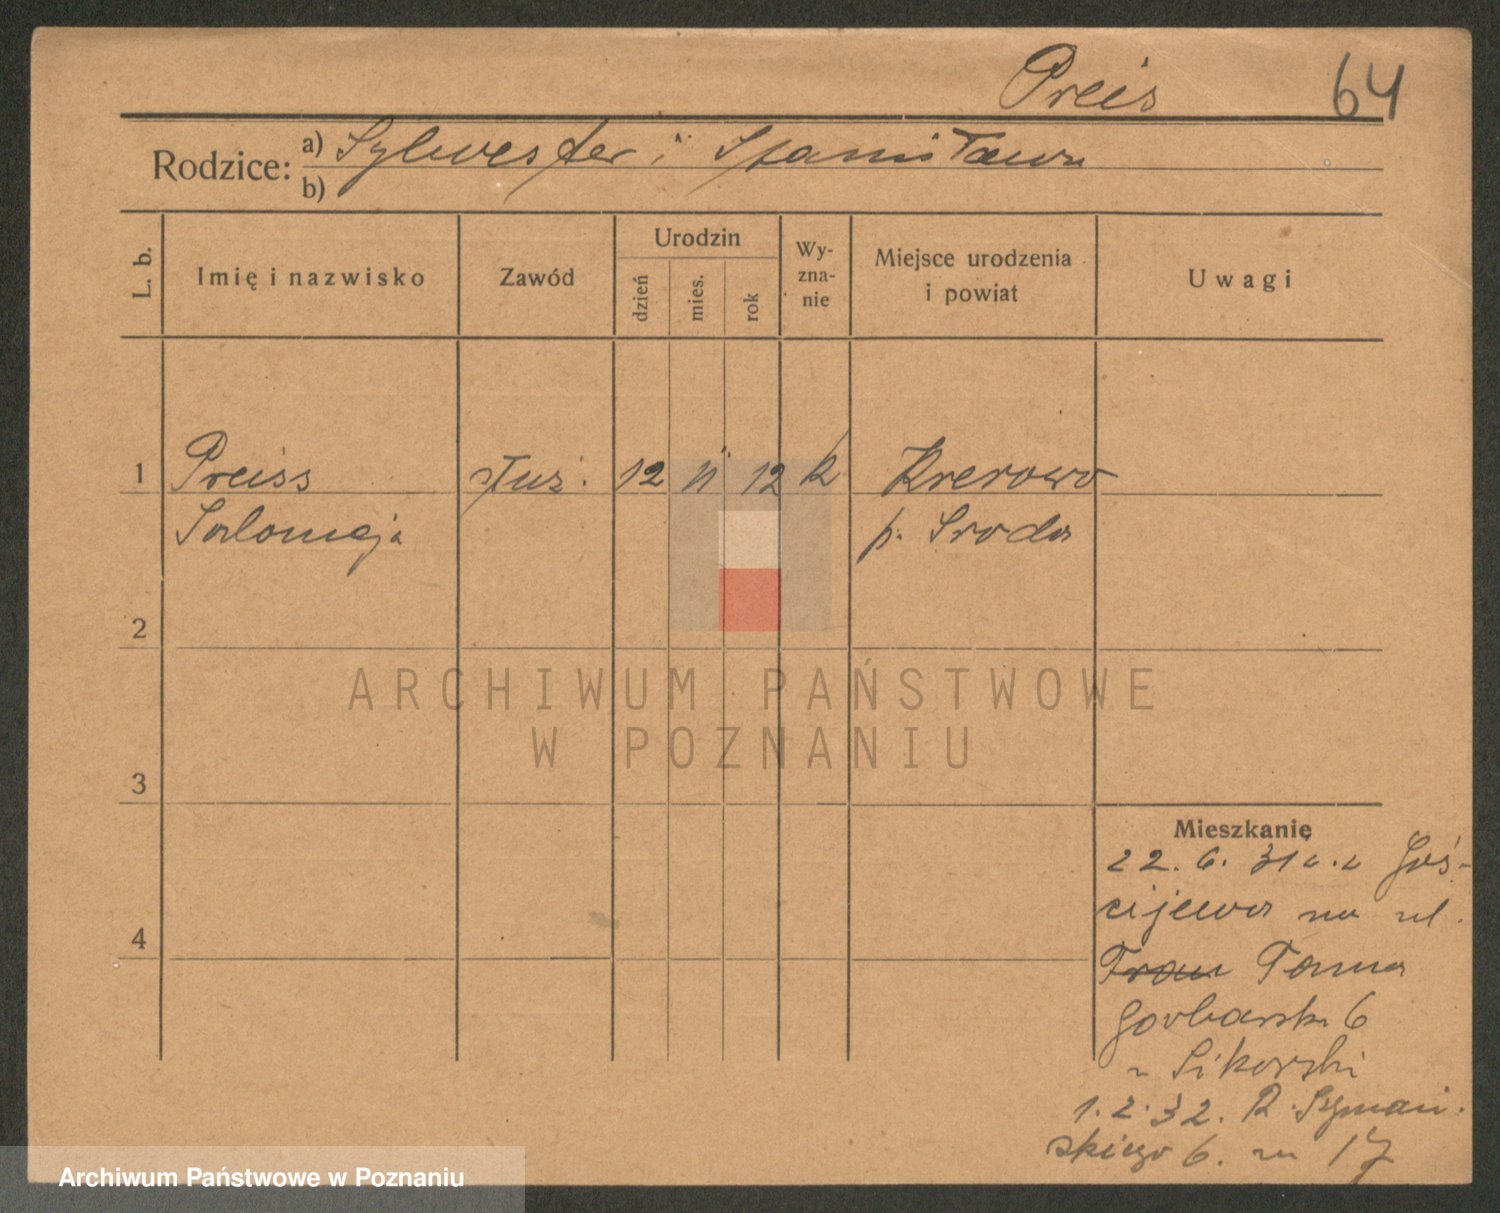 Preis 64
Rodzice: a) Sylwester i Stanisława
b)
L. b. Imię i nazwisko Zawód Urodzin dzień mies. rok Wy-zna-nie Miejsce urodzenia i powiat Uwagi
1 Preiss służ. 12 11 12 k Krerowo
Salomeja p. Sroda
2
ARCHIWUM PAŃSTWOWE
W POZNANIU
3
Mieszkanie
22. 6. 31 Goś-
4 cijewa na ul.
Tama
Garbarsk. 6
Sikorski
1. 2. 32. R. Szymań.
skiego 6. m 17
Archiwum Państwowe w Poznaniu